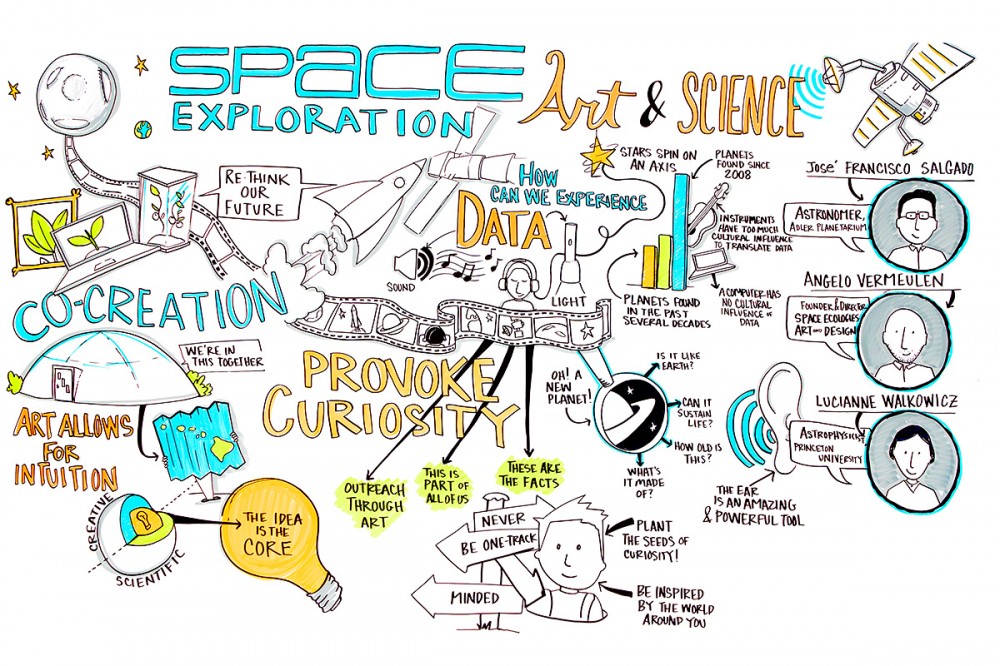 SPACE
EXPLORATION
Art & SCIENCE
RE-THINK
OUR
FUTURE
HOW
CAN WE EXPERIENCE
DATA
SOUND
LIGHT
STARS SPIN ON
AN AXIS
PLANETS
FOUND SINCE
2008
INSTRUMENTS
HAVE TOO MUCH
CULTURAL INFLUENCE
TO TRANSLATE DATA
PLANETS FOUND
IN THE PAST
SEVERAL DECADES
A COMPUTER HAS
NO CULTURAL
INFLUENCE OF
DATA
JOSE´ FRANCISCO SALGADO
ASTRONOMER,
ADLER PLANETARIUM
ANGELO VERMEULEN
FOUNDER & DIRECTOR
SPACE ECOLOGIES
ART AND DESIGN
LUCIANNE WALKOWICZ
ASTROPHYSICS,
PRINCETON
UNIVERSITY
CO-CREATION
WE'RE IN
THIS TOGETHER
ART ALLOWS
FOR
INTUITION
CREATIVE
SCIENTIFIC
THE IDEA
IS THE
CORE
PROVOKE
CURIOSITY
OUTREACH
THROUGH
ART
THIS IS
PART OF
ALL OF US
THESE ARE
THE FACTS
OH! A
NEW
PLANET!
IS IT LIKE
EARTH?
CAN IT
SUSTAIN
LIFE?
HOW OLD IS
THIS?
WHAT'S
IT MADE
OF?
THE EAR
IS AN AMAZING
& POWERFUL TOOL
NEVER
BE ONE-TRACK
MINDED
PLANT
THE SEEDS OF
CURIOSITY!
BE INSPIRED
BY THE WORLD
AROUND YOU